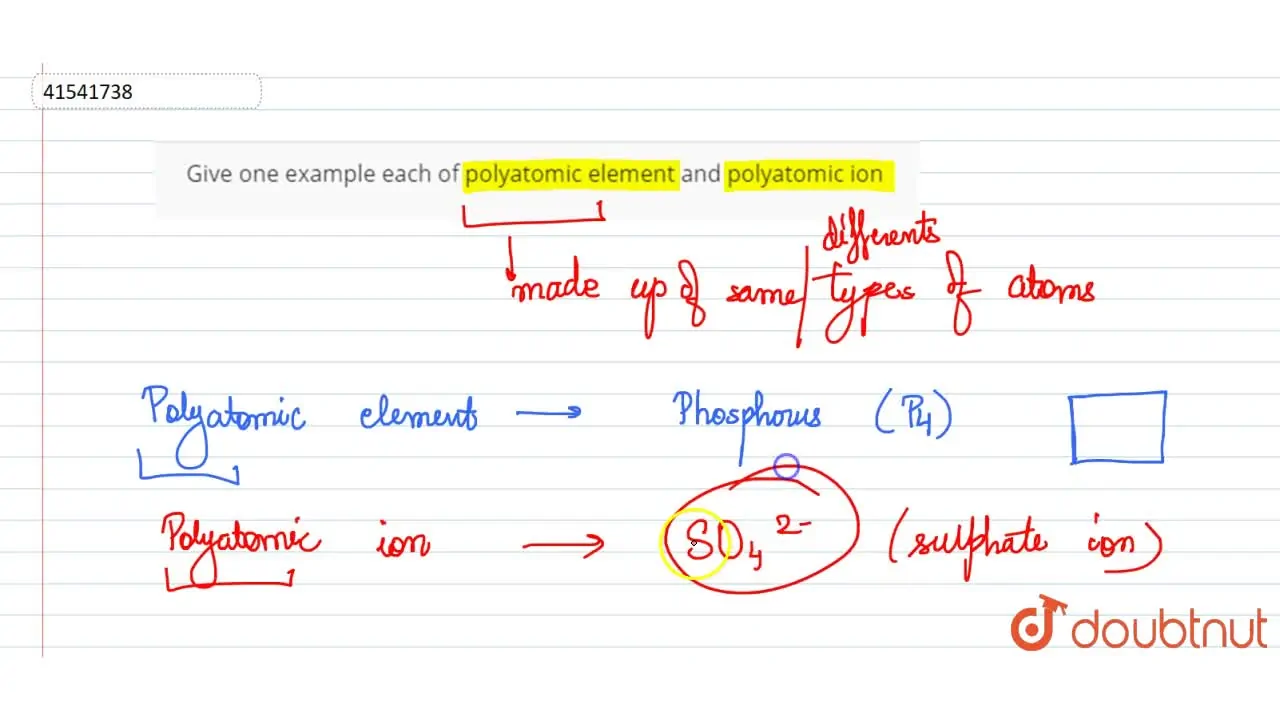 41541738
Give one example each of polyatomic element and polyatomic ion
differents
made up of same/types of atoms
Polyatomic element → Phosphorus (P4)
Polyatomic ion → SO4 2- (sulphate ion)
doubtnut